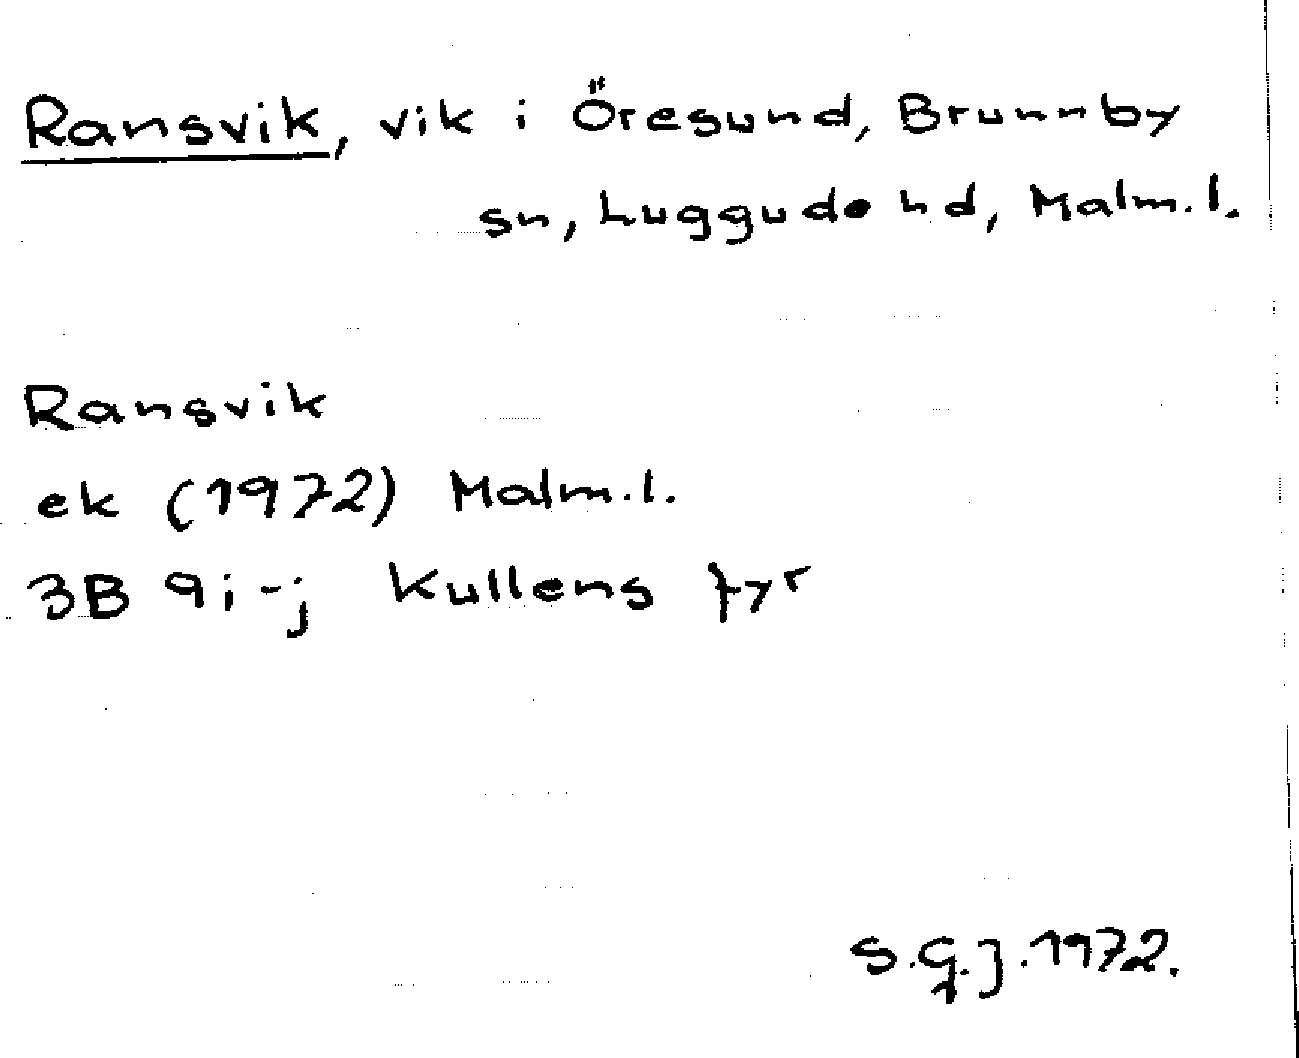 Ransvik, vik i Öresund, Brunnby
sn, Luggude hd, Malm.l.
Ransvik
ek (1972) Malm.l.
3B 9i-j Kullens fyr
S.G.J.1972.